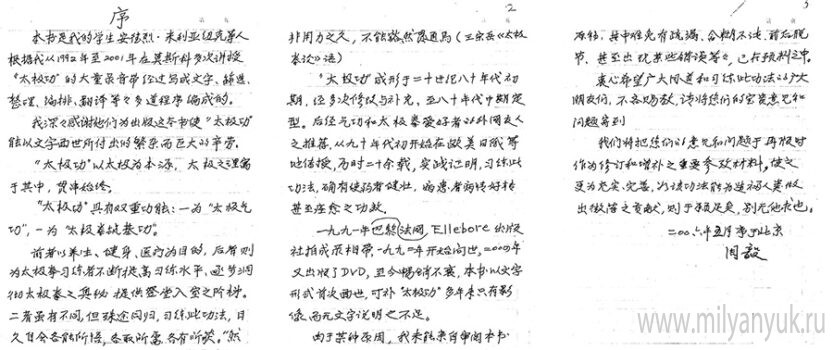 序
本书是我的学生安德烈·米利亚纽克等人
根据我从1992年至2001年在莫斯科多次讲授
"太极功"的大量录音带经过写成文字、筛选、
整理、编排、翻译等多道程序编成的。
我深深感谢他们为出版这本书使"太极功"
能以文字面世所付出的繁杂而巨大的辛劳。
"太极功"以太极为本源，太极之理寓
于其中，贯串始终。
"太极功"具有双重功能：一为"太极气
功"，一为"太极拳桩基功"。
前者以养生、健身、医疗为目的，后者则
为太极拳习练者不断提高习练水平，逐步洞
彻太极拳之奥秘提供登堂入室之阶梯。
二者虽有不同，但殊途同归，习练此功法，日
久自会各能所悟，各取所需，各有所获。"然
2
非用力之久，不能豁然贯通焉（王宗岳《太极
拳论》语）
"太极功"成形于二十世纪八十年代初
期，经多次修改与补充，至八十年代中期定
型。后经气功和太极拳爱好者的外国友人
之推荐，从九十年代初开始在欧美日俄等
地传授，历时二十余载，实践证明，习练此
功法，确有使弱者健壮，病患者病情好转
甚至痊愈之功效。
一九九一年巴黎（法国，Ellebore出版
社拍成录相带，一九九一年开始问世，二〇〇四年
又出版了DVD，至今畅销不衰，本书以文字
形式首次面世，可补"太极功"多年来只有影
像，而无文字说明之不足。
由于某种原因，我未能亲自审阅本书
3
原稿，其中难免有疏漏、含糊不详、前后脱
节、甚至出现某些错误等，已在预料之中。
衷心希望广大同道和习练此功法的广大
朋友们，不吝赐教，请将您们的宝贵意见和
问题寄到
我们将把您们的意见和问题于再版时
作为修订和增补之重要参考材料，使之
更为充实、完善，为该功法能为造福人类做
出微薄之贡献，则于愿足矣，别无他求也。
二〇〇六年五月草于北京
周毅
www.milyanyuk.ru